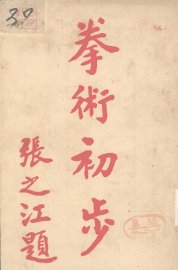 拳術初步
張之江題